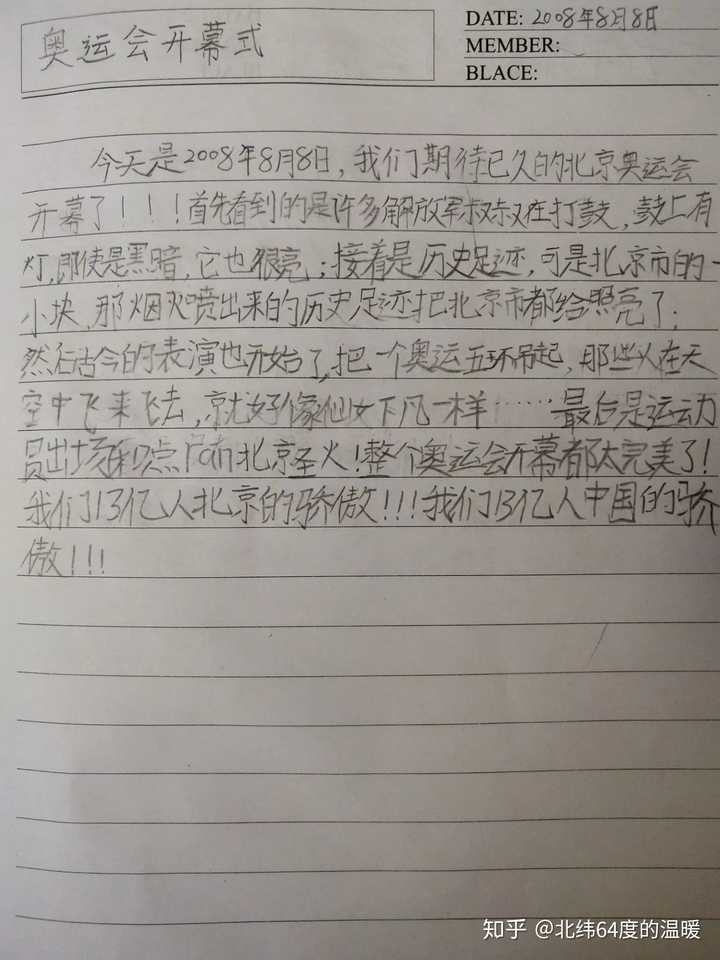 奥运会开幕式
DATE: 2008年8月8日
MEMBER:
BLACE:
今天是2008年8月8日,我们期待已久的北京奥运会
开幕了!!!首先看到的是许多解放军叔叔在打鼓,鼓上有
灯,即使是黑暗,它也很亮;接着是历史足迹,可是北京市的一
小块,那烟火喷出来的历史足迹把北京市都给照亮了;
然后古今的表演也开始了,把一个奥运五环吊起,那些人在天
空中飞来飞去,就好像仙女下凡一样……最后是运动
员出场和点ran北京圣火!整个奥运会开幕都太完美了!
我们13亿人北京的骄傲!!!我们13亿人中国的骄
傲!!!
知乎 @北纬64度的温暖